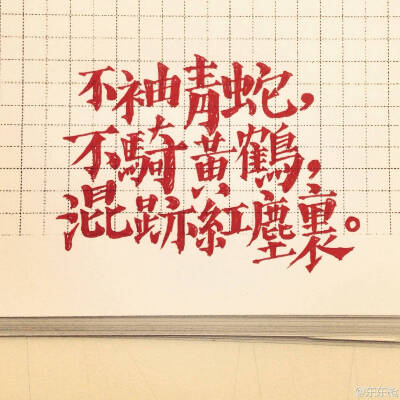 不袖青蛇，
不騎黃鶴，
混跡紅塵裏。
@东东枪